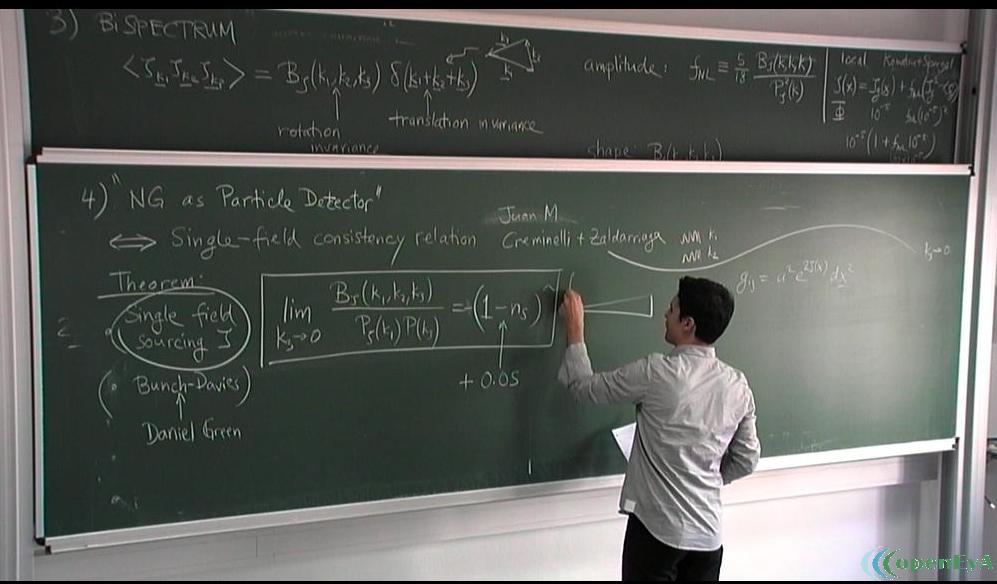 3) BISPECTRUM
<ζk1 ζk2 ζk3> = Bζ(k1,k2,k3) δ(k1+k2+k3)
rotation invariance
translation invariance
amplitude: fNL ≡ 5/18 Bζ(k,k,k)/Pζ²(k)
shape: Bζ(k1,k2,k3)
local
4) "NG as Particle Detector"
⟺ Single-field consistency relation
Juan M
Creminelli + Zaldarriaga
k1
k2
k3→0
gij = a² e^2ζ(x) dx²
Theorem:
• Single field sourcing ζ
(• Bunch-Davies)
Daniel Green
lim k3→0 Bζ(k1,k2,k3)/Pζ(k1)P(k3) = (1-ns)
+0.05
openEyA